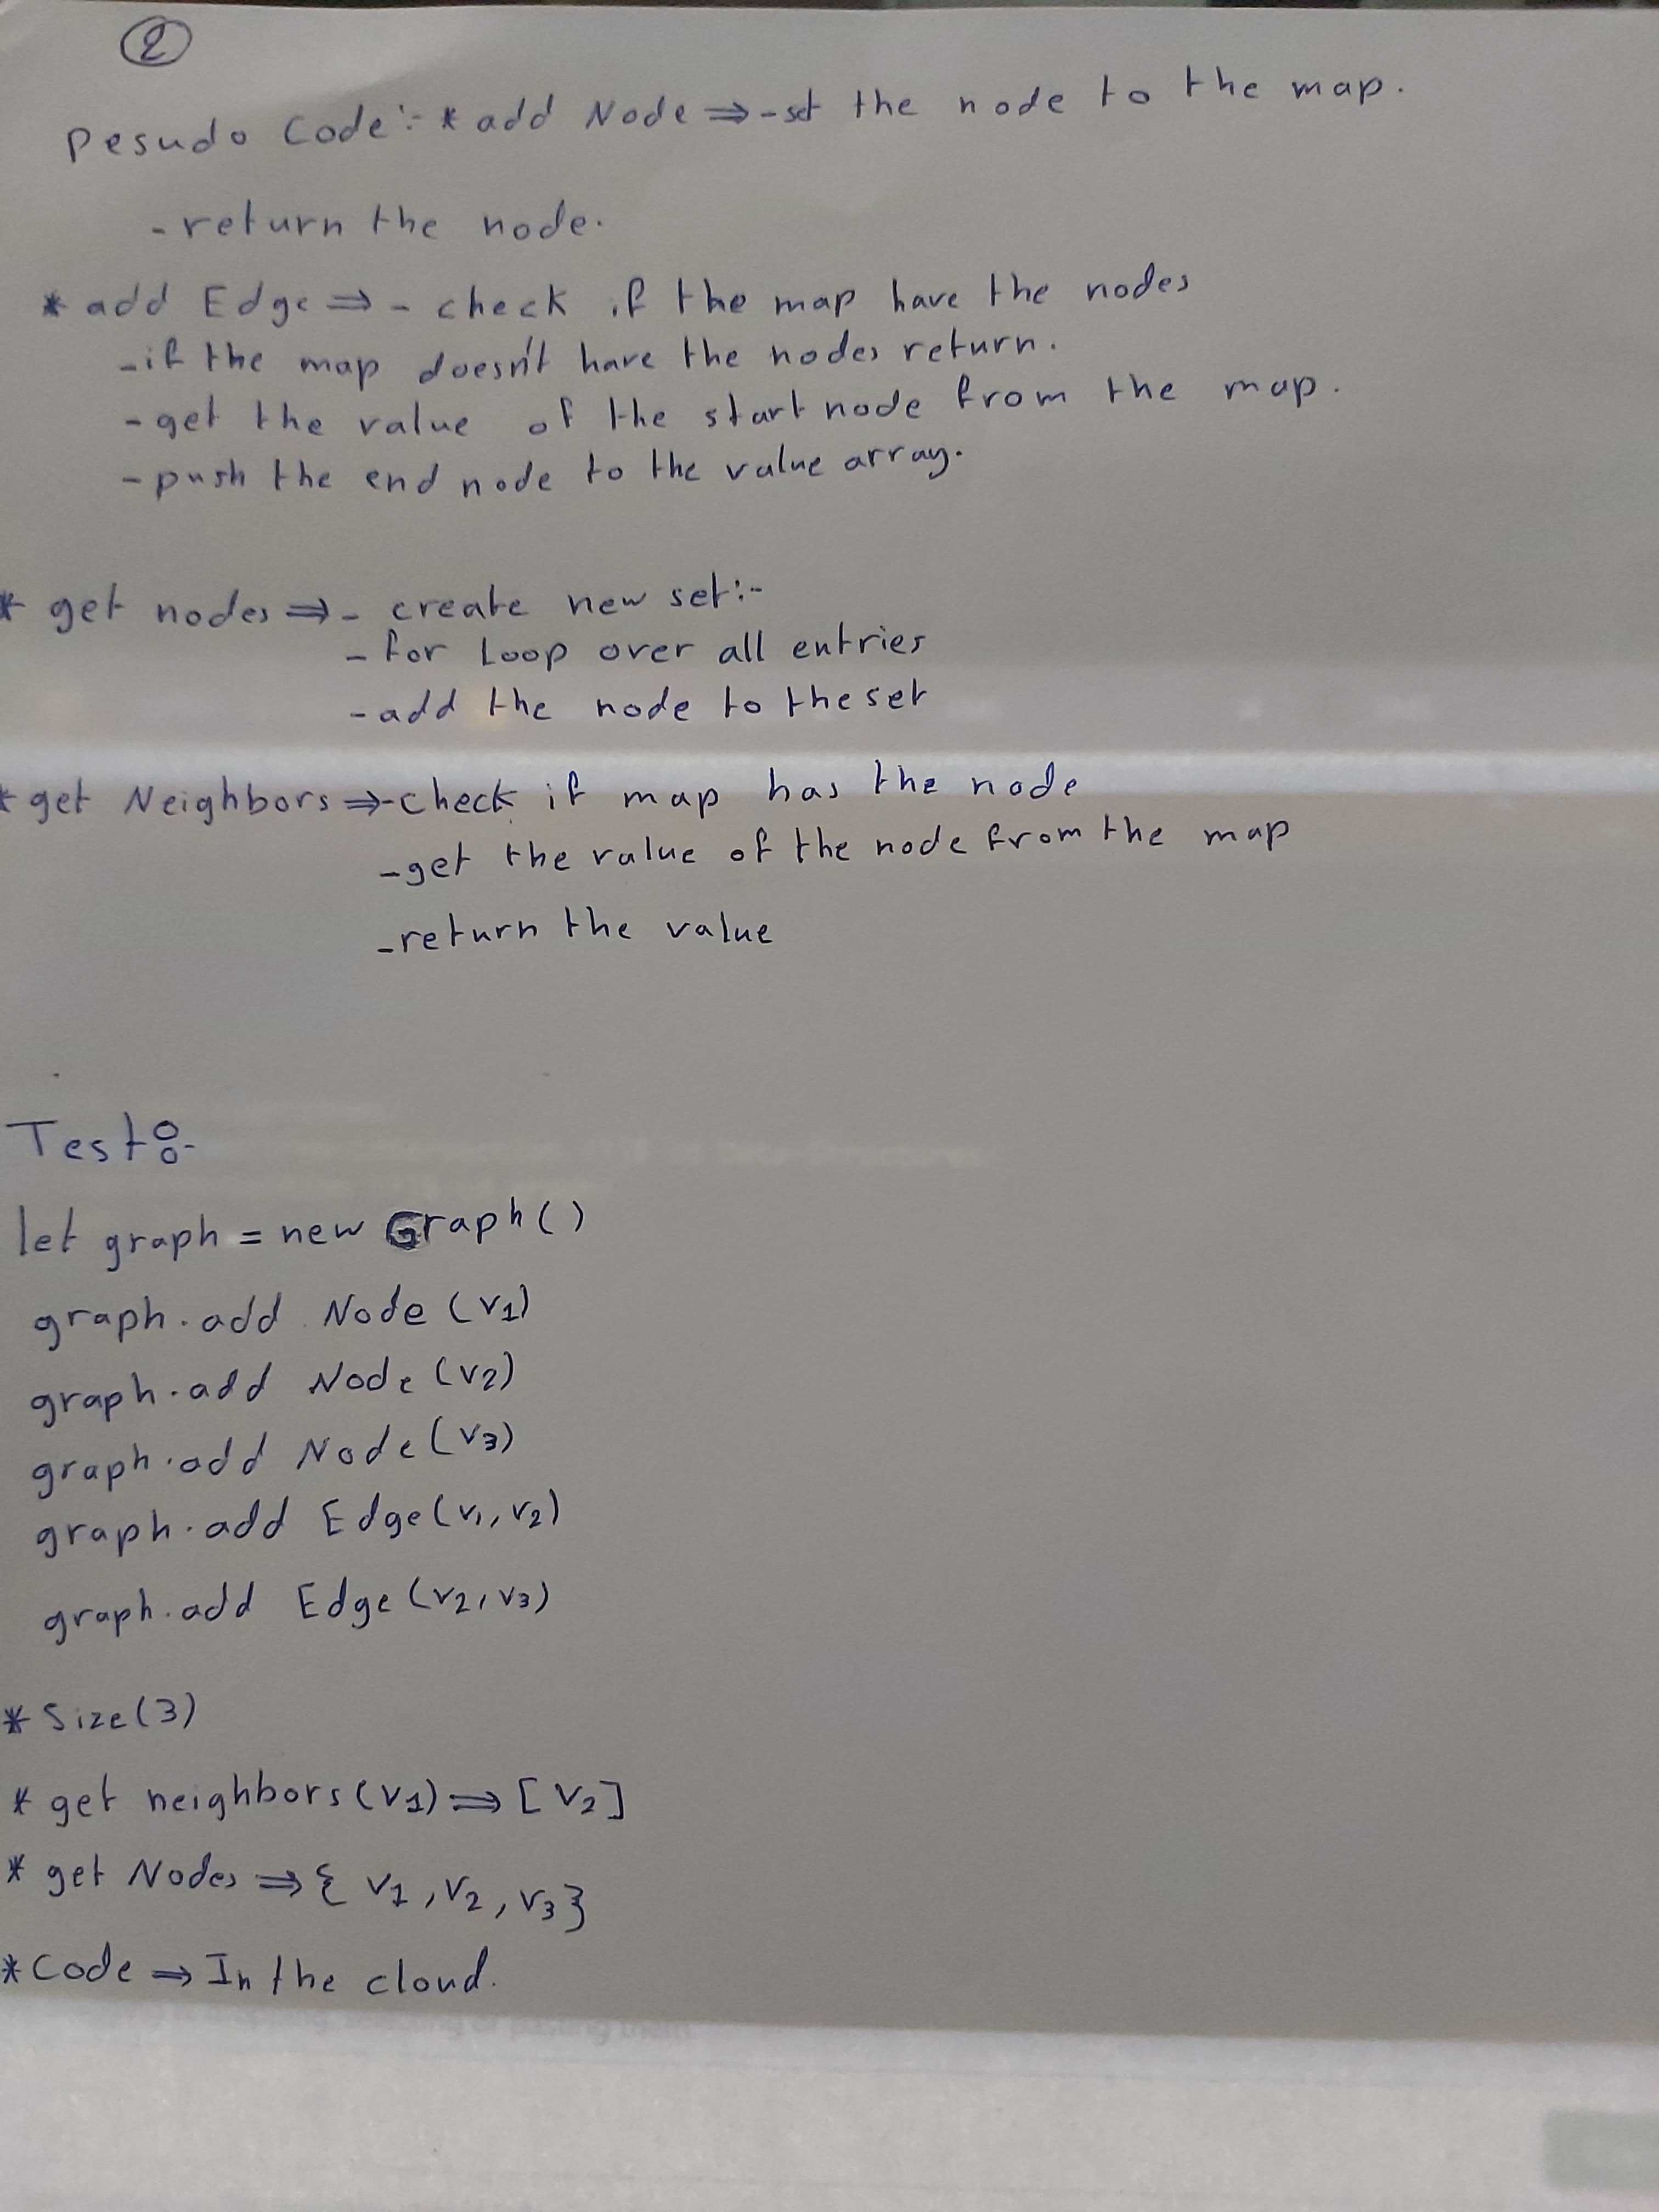 2
Pesudo Code:- * add Node ⇒ - set the node to the map.
- return the node.
* add Edge ⇒ - check if the map have the nodes
- if the map doesn't have the nodes return.
- get the value of the start node from the map.
- push the end node to the value array.
* get nodes ⇒ - create new set:-
- for Loop over all entries
- add the node to the set
* get Neighbors ⇒ - check if map has the node
- get the value of the node from the map
- return the value
Test:-
let graph = new Graph()
graph.add Node (v1)
graph.add Node (v2)
graph.add Node (v3)
graph.add Edge (v1, v2)
graph.add Edge (v2, v3)
* Size(3)
* get neighbors (v1) ⇒ [V2]
* get Nodes ⇒ { v1, v2, v3}
* Code ⇒ In the cloud.